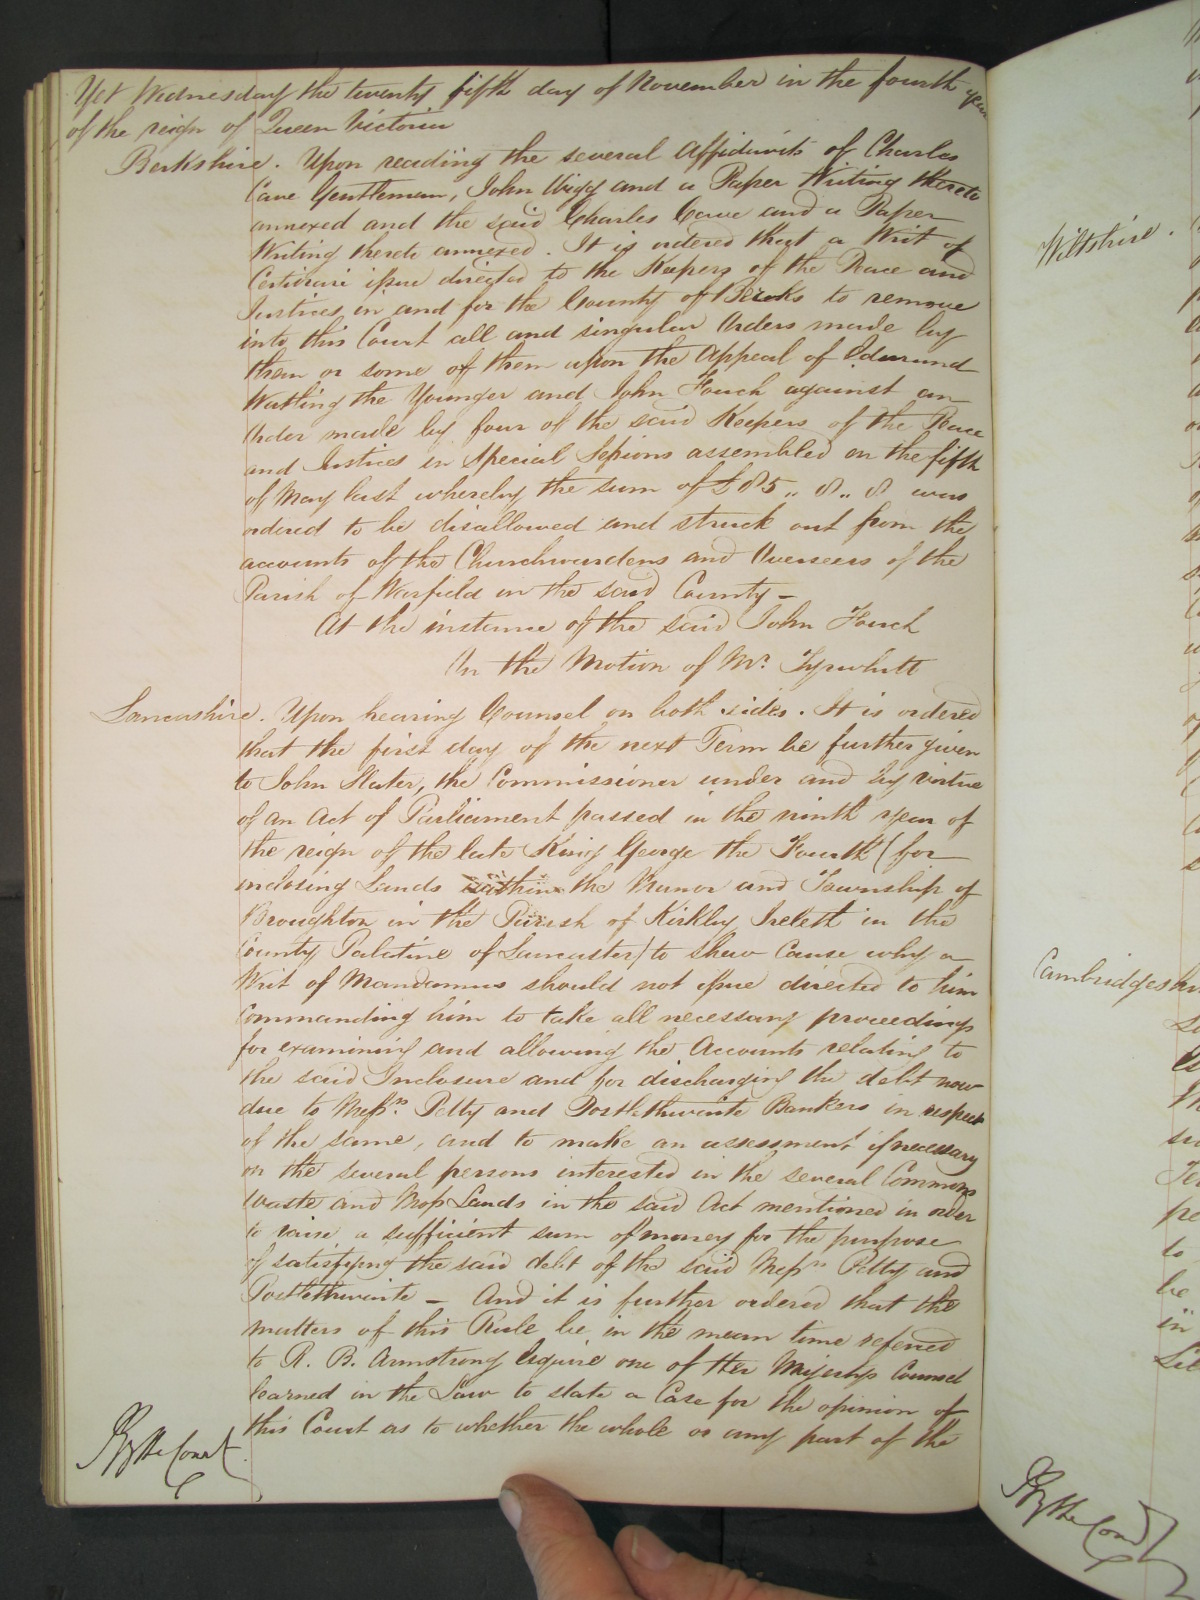 Yet Wednesday the twenty fifth day of November in the fourth year
of the reign of Queen Victoria
Berkshire. Upon reading the several Affidavits of Charles
Cave Gentleman, John Wigg and a Paper Writing thereto
annexed and the said Charles Cave and a Paper
Writing thereto annexed. It is ordered that a Writ of
Certiorari issue directed to the Keepers of the Peace and
Justices in and for the County of Berks to remove
into this Court all and singular Orders made by
them or some of them upon the Appeal of Edmund
Watling the Younger and John Houch against an
Order made by four of the said Keepers of the Peace
and Justices in Special Sessions assembled on the fifth
of May last whereby the sum of £85,, 8,, 8 was
ordered to be disallowed and struck out from the
accounts of the Churchwardens and Overseers of the
Parish of Warfield in the said County –
At the instance of the said John Houch
On the Motion of Mr. Tyrwhitt
Lancashire. Upon hearing Counsel on both sides. It is ordered
that the first day of the next Term be further given
to John Slater, the Commissioner under and by virtue
of an Act of Parliament passed in the ninth year of
the reign of the late King George the Fourth (for
inclosing Lands within the Manor and Township of
Broughton in the Parish of Kirkby Ireleth in the
County Palatine of Lancaster) to shew Cause why a
Writ of Mandamus should not issue directed to him
Commanding him to take all necessary proceedings
for examining and allowing the Accounts relating to
the said Inclosure and for discharging the debt now
due to Messrs. Petty and Postlethwaite Bankers in respect
of the same, and to make an assessment if necessary
on the several persons interested in the several Commons
Waste and Moss Lands in the said Act mentioned in order
to raise a sufficient sum of money for the purpose
of satisfying the said debt of the said Messrs Petty and
Postlethwaite – And it is further ordered that the
matters of this Rule be in the mean time referred
to R. B. Armstrong Esquire one of Her Majestys Counsel
learned in the Law to state a Case for the opinion of
this Court as to whether the whole or any part of the
By the Court.
Wiltshire.
Cambridgeshire
By the Court